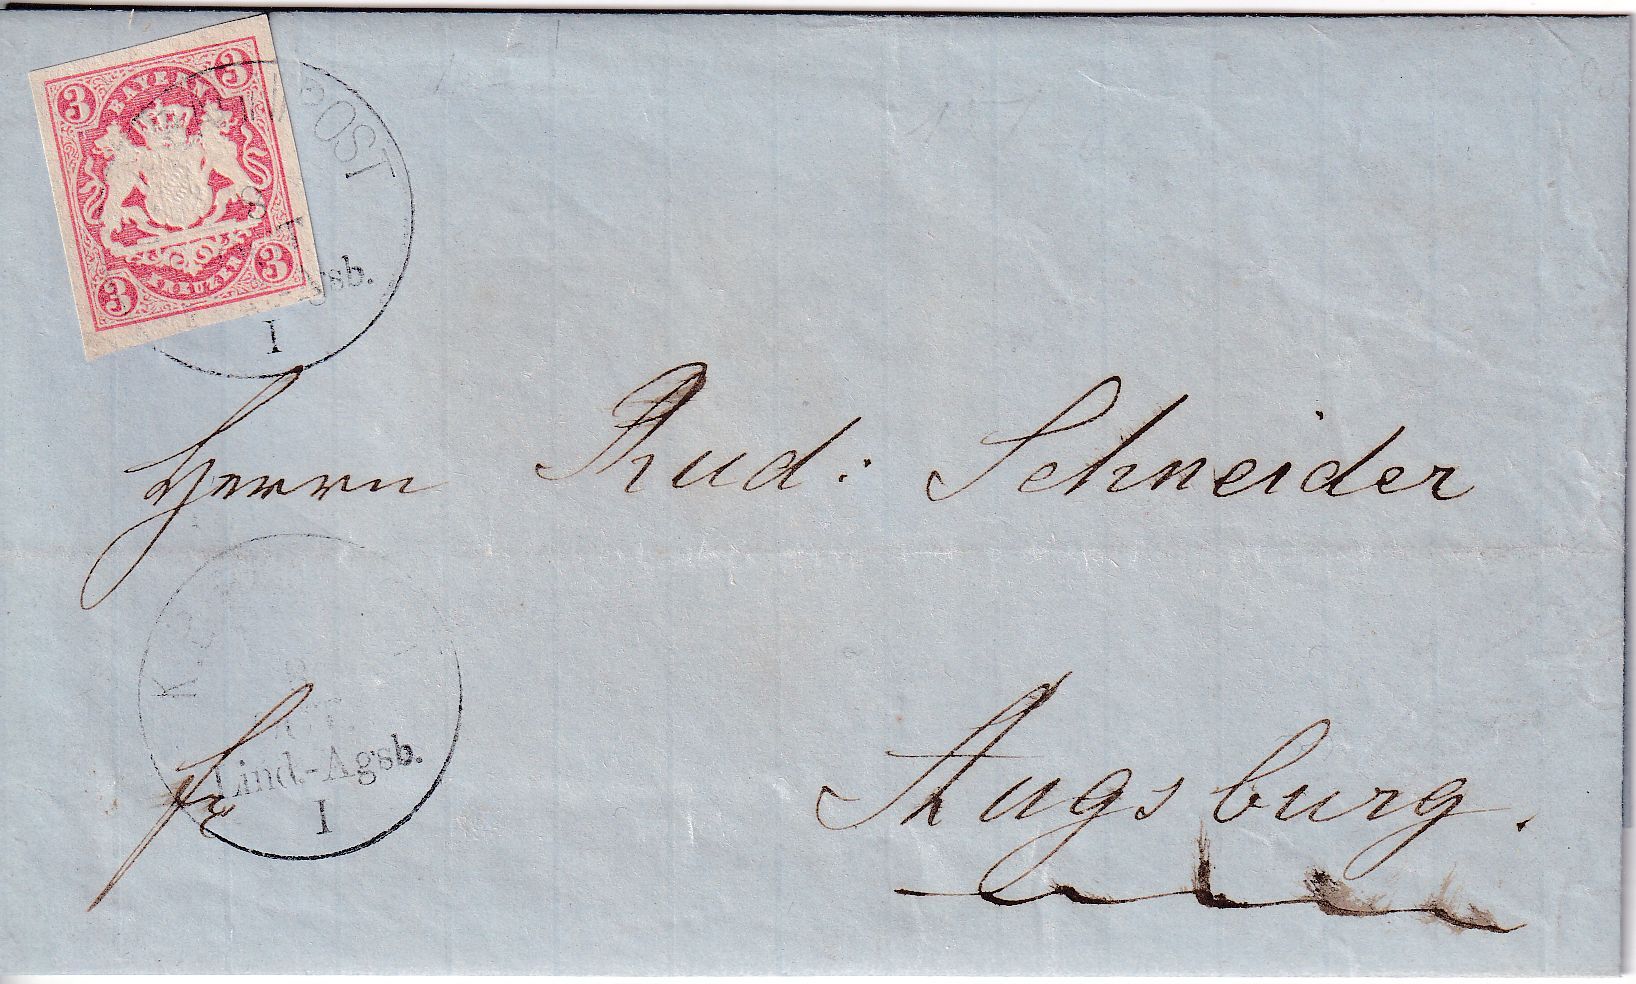 3 3
BAYERN
POST
9
Agsb.
KREUZER
3 3
I
Herrn Rud: Schneider
K.
9
Lind-Agsb.
fr
I
Augsburg.